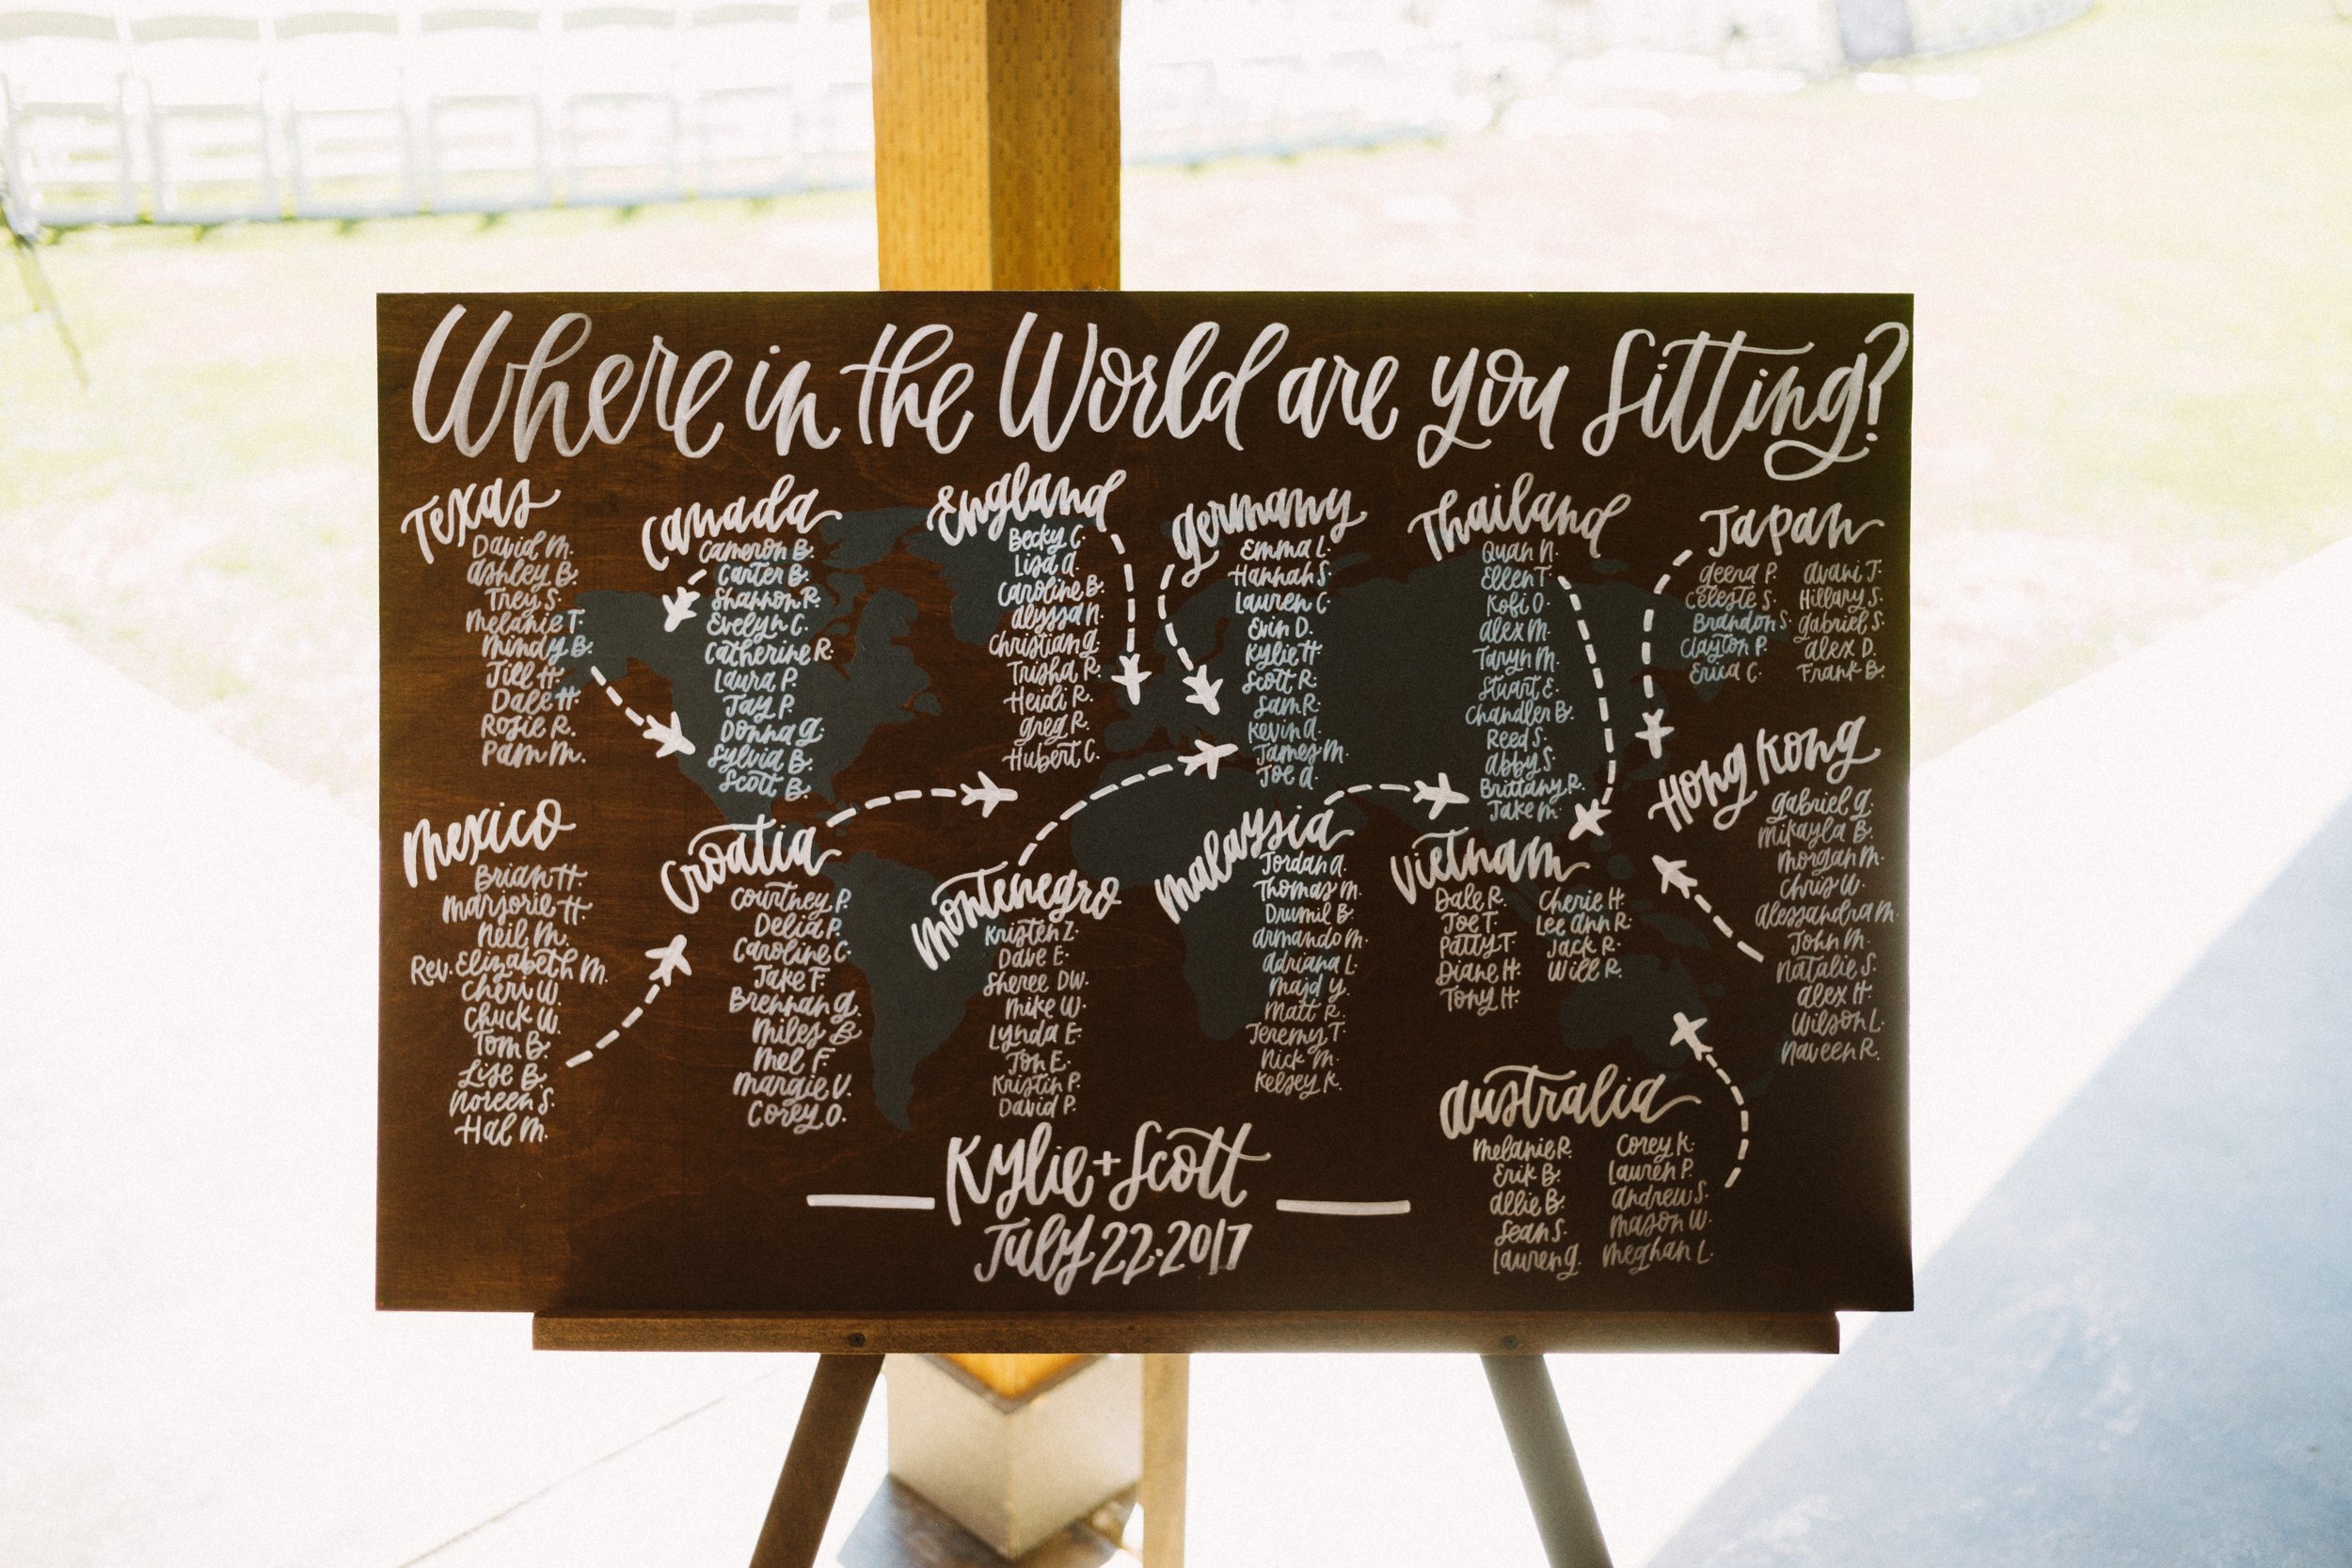 Where in the World are you Sitting?
Texas
David M.
Ashley B.
Trey S.
Melanie T.
Mindy B.
Jill H.
Dale H.
Rosie R.
Pam M.
Canada
Cameron B.
Carter B.
Shannon R.
Evelyn C.
Catherine R.
Laura P.
Jay P.
Donna G.
Sylvia B.
Scott B.
England
Becky C.
Lisa A.
Caroline B.
Alyssa N.
Christian G.
Trisha R.
Heidi R.
Greg R.
Hubert C.
Germany
Emma L.
Hannah S.
Lauren C.
Erin D.
Kylie H.
Scott R.
Sam R.
Kevin A.
James M.
Joe A.
Thailand
Quan N.
Ellen T.
Kobi O.
Alex M.
Taryn M.
Stuart E.
Chandler B.
Reed S.
Abby S.
Brittany R.
Jake M.
Japan
Geena P.
Celeste S.
Brandon S.
Clayton P.
Erica C.
Avani J.
Hillary S.
Gabriel S.
Alex D.
Frank B.
Mexico
Brian H.
Marjorie H.
Neil M.
Rev. Elizabeth M.
Cheri W.
Chuck W.
Tom B.
Lise B.
Noreen S.
Hal M.
Croatia
Courtney P.
Delia P.
Caroline C.
Jake F.
Brennan G.
Miles B
Mel F.
Margie V.
Corey O.
Montenegro
Kristen Z.
Dave E.
Sheree DW.
Mike W.
Lynda E.
Jon E.
Kristin P.
David P.
Malaysia
Jordan A.
Thomas M.
Drumil B.
Armando M.
Adriana L.
Majd Y.
Matt R.
Jeremy T.
Nick M.
Kelsey K.
Vietnam
Dale R.
Joe T.
Patty T.
Diane H.
Tony H.
Cherie H.
Lee Ann R.
Jack R.
Will R.
Hong Kong
Gabriel G.
Mikayla B.
Morgan M.
Chris W.
Alessandra M.
John M.
Natalie S.
Alex H.
Wilson L.
Naveen R.
Australia
Melanie R.
Erik B.
Allie B.
Sean S.
Lauren G.
Corey K.
Lauren P.
Andrew S.
Mason W.
Meghan L.
Kylie + Scott
July 22·2017